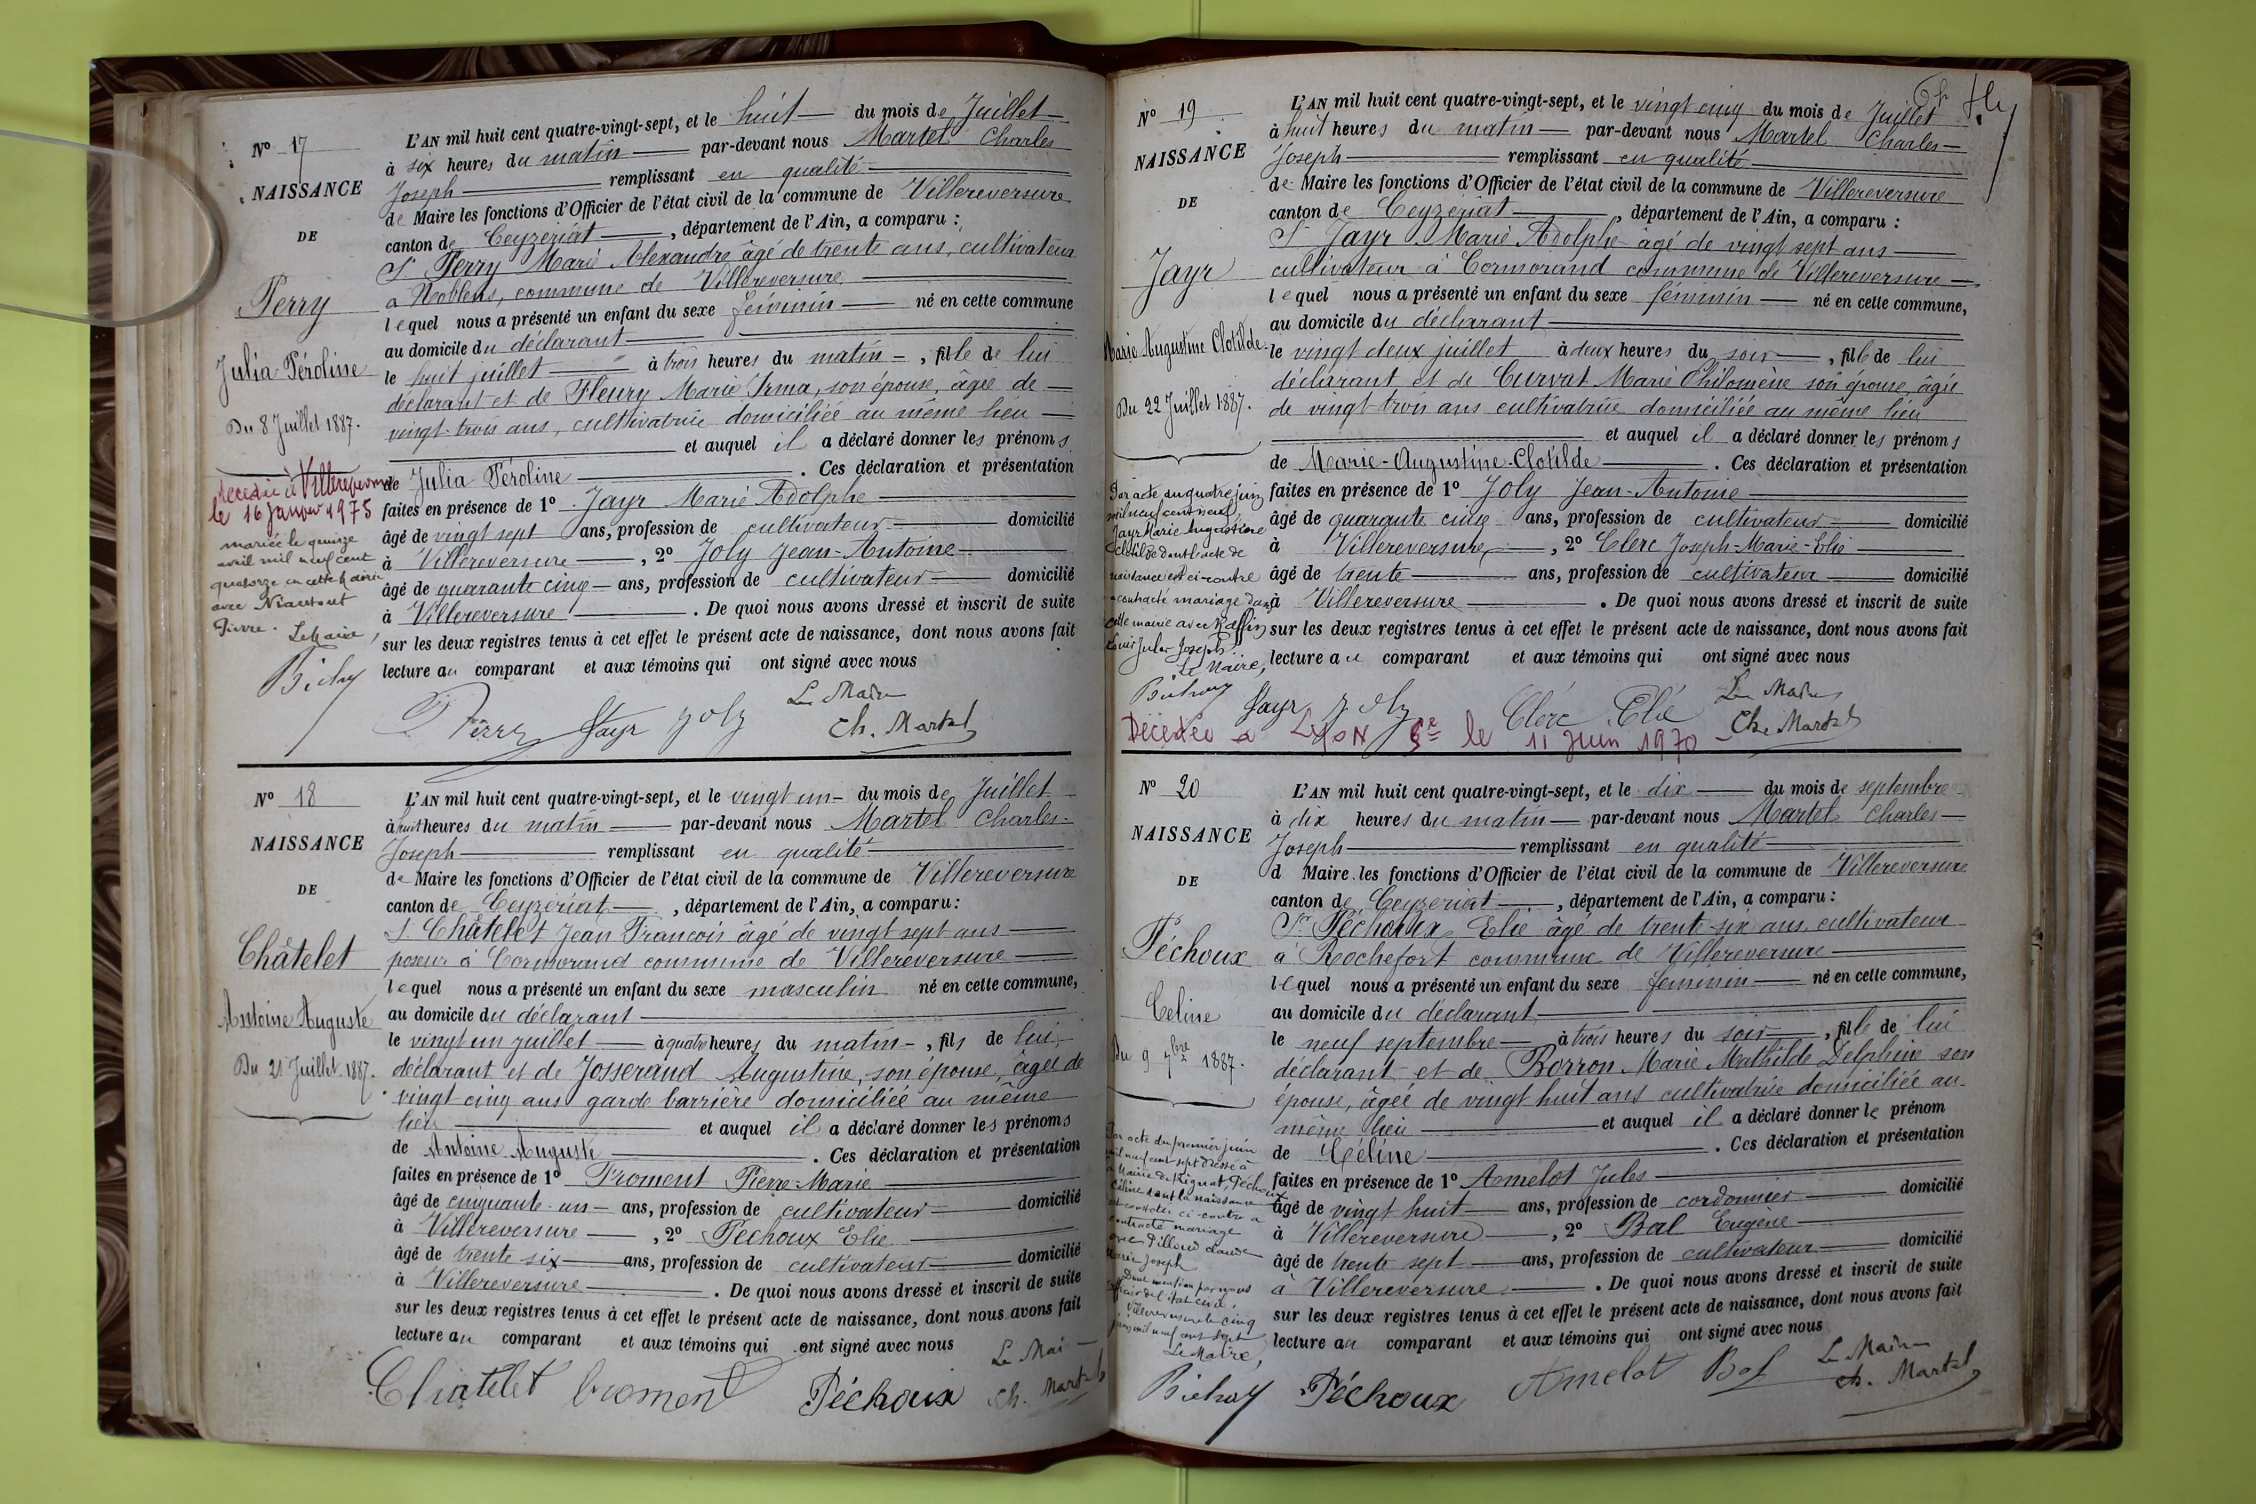 Nº 17
NAISSANCE
DE
Perry
Julia Péroline
Du 8 Juillet 1887.
décédée à Villereversure
le 16 Janvier 1975
mariée le quinze
avril mil neuf cent
quatorze en cette mairie
avec
Pierre. Le Maire,
L'AN mil huit cent quatre-vingt-sept, et le huit du mois de Juillet
à six heures du matin par-devant nous Martel Charles
Joseph remplissant en qualité
de Maire les fonctions d'Officier de l'état civil de la commune de Villereversure
canton de Ceyzériat, département de l'Ain, a comparu :
Sr Perry Marie Alexandre âgé de trente ans, cultivateur
à Noblens, commune de Villereversure
lequel nous a présenté un enfant du sexe féminin né en cette commune
au domicile du déclarant
le huit juillet à trois heures du matin, fille de lui
déclarant et de Fleury Marie Irma, son épouse, âgée de
vingt-trois ans, cultivatrice domiciliée au même lieu
et auquel il a déclaré donner les prénoms
de Julia Péroline. Ces déclaration et présentation
faites en présence de 1º Jayr Marie Adolphe
âgé de vingt sept ans, profession de cultivateur domicilié
à Villereversure, 2º Joly Jean-Antoine
âgé de quarante cinq ans, profession de cultivateur domicilié
à Villereversure. De quoi nous avons dressé et inscrit de suite
sur les deux registres tenus à cet effet le présent acte de naissance, dont nous avons fait
lecture au comparant et aux témoins qui ont signé avec nous
Perry Jayr Joly Le Maire
Ch. Martel
Nº 18
NAISSANCE
DE
Châtelet
Antoine Auguste
Du 21 Juillet 1887.
L'AN mil huit cent quatre-vingt-sept, et le vingt un du mois de Juillet
à huit heures du matin par-devant nous Martel Charles
Joseph remplissant en qualité
de Maire les fonctions d'Officier de l'état civil de la commune de Villereversure
canton de Ceyzériat, département de l'Ain, a comparu :
Sr Châtelet Jean François âgé de vingt sept ans
poseur à Cormorand commune de Villereversure
lequel nous a présenté un enfant du sexe masculin né en cette commune,
au domicile du déclarant
le vingt un juillet à quatre heures du matin, fils de lui
déclarant et de Josserand Augustine, son épouse, âgée de
vingt cinq ans garde barrière domiciliée au même
lieu et auquel il a déclaré donner les prénoms
de Antoine Auguste. Ces déclaration et présentation
faites en présence de 1º Froment Pierre-Marie
âgé de cinquante-un ans, profession de cultivateur domicilié
à Villereversure, 2º Péchoux Elie
âgé de trente six ans, profession de cultivateur domicilié
à Villereversure. De quoi nous avons dressé et inscrit de suite
sur les deux registres tenus à cet effet le présent acte de naissance, dont nous avons fait
lecture au comparant et aux témoins qui ont signé avec nous
Le Mai
Chatelet Froment Péchoux Ch. Martel
Nº 19
NAISSANCE
DE
Jayr
Marie Augustine Clotilde
Du 22 Juillet 1887.
Par acte du quatre juin
mil neuf cent neuf,
Jayr Marie Augustine
Clotilde dont l'acte de
naissance est ci-contre
a contracté mariage dans
cette mairie avec
Louis Jules Joseph
Le Maire,
L'AN mil huit cent quatre-vingt-sept, et le vingt cinq du mois de Juillet
à huit heures du matin par-devant nous Martel Charles
Joseph remplissant en qualité
de Maire les fonctions d'Officier de l'état civil de la commune de Villereversure
canton de Ceyzériat, département de l'Ain, a comparu :
Sr Jayr Marie Adolphe âgé de vingt sept ans
cultivateur à Cormorand commune de Villereversure
lequel nous a présenté un enfant du sexe féminin né en cette commune,
au domicile du déclarant
le vingt deux juillet à deux heures du soir, fille de lui
déclarant et de Curvat Marie Philomène son épouse, âgée
de vingt trois ans cultivatrice domiciliée au même lieu
et auquel il a déclaré donner les prénoms
de Marie-Augustine-Clotilde. Ces déclaration et présentation
faites en présence de 1º Joly Jean-Antoine
âgé de quarante cinq ans, profession de cultivateur domicilié
à Villereversure, 2º Clerc Joseph-Marie-Elie
âgé de trente ans, profession de cultivateur domicilié
à Villereversure. De quoi nous avons dressé et inscrit de suite
sur les deux registres tenus à cet effet le présent acte de naissance, dont nous avons fait
lecture au comparant et aux témoins qui ont signé avec nous
Jayr Joly Clerc Elie Le Maire
Ch. Martel
Décédée à Lyon le 11 Juin 1970
Nº 20
NAISSANCE
DE
Péchoux
Céline
Du 9 7bre 1887.
Par acte du premier juin
mil neuf cent sept dressé à
la Mairie de Rignat Péchoux
Céline dont la naissance
est constatée ci-contre a
contracté mariage
avec Pilloud Claude
Marie Joseph
Dont mention par nous
officier de l'état civil,
Villereversure le cinq
juin mil neuf cent sept
Le Maire,
L'AN mil huit cent quatre-vingt-sept, et le dix du mois de septembre
à dix heures du matin par-devant nous Martel Charles
Joseph remplissant en qualité
d Maire les fonctions d'Officier de l'état civil de la commune de Villereversure
canton de Ceyzériat, département de l'Ain, a comparu :
Sr Péchoux Elie âgé de trente-six ans cultivateur
à Rochefort commune de Villereversure
lequel nous a présenté un enfant du sexe féminin né en cette commune,
au domicile du déclarant
le neuf septembre à trois heures du soir, fille de lui
déclarant et de Borron Marie Mathilde Delphine son
épouse, âgée de vingt huit ans cultivatrice domiciliée au
même lieu et auquel il a déclaré donner le prénom
de Céline. Ces déclaration et présentation
faites en présence de 1º Amelot Jules
âgé de vingt huit ans, profession de cordonnier domicilié
à Villereversure, 2º Bal Eugène
âgé de trente sept ans, profession de cultivateur domicilié
à Villereversure. De quoi nous avons dressé et inscrit de suite
sur les deux registres tenus à cet effet le présent acte de naissance, dont nous avons fait
lecture au comparant et aux témoins qui ont signé avec nous
Péchoux Amelot Bal Le Maire
Ch. Martel